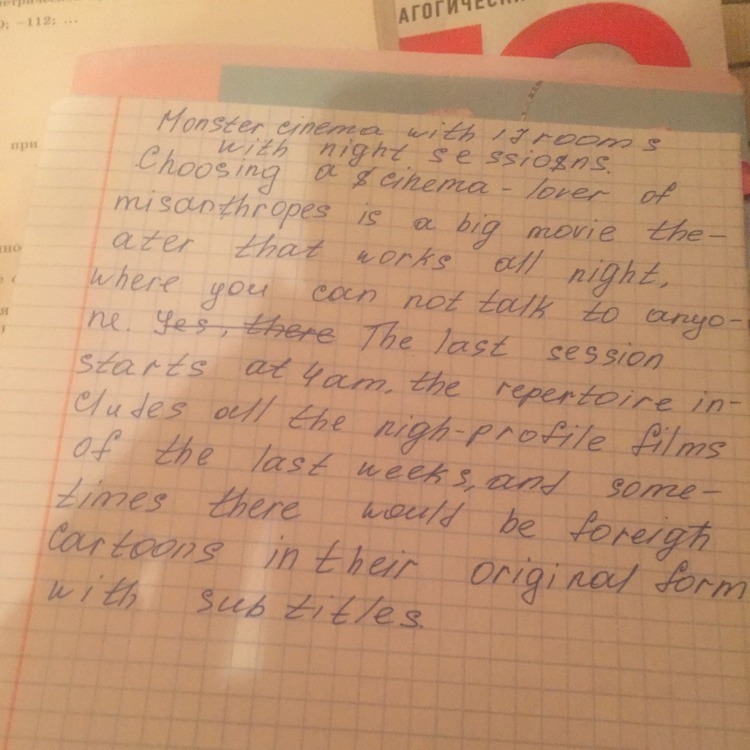 АГОГИЧЕСКИ
; −112; ...
при
Monster cinema with 17 rooms
with night sessions.
Choosing a cinema - lover of
misanthropes is a big movie the-
ater that works all night,
where you can not talk to anyo-
ne. Yes, there The last session
starts at 4am. the repertoire in-
cludes all the high-profile films
of the last weeks, and some-
times there would be foreigh
cartoons in their original form
with subtitles.